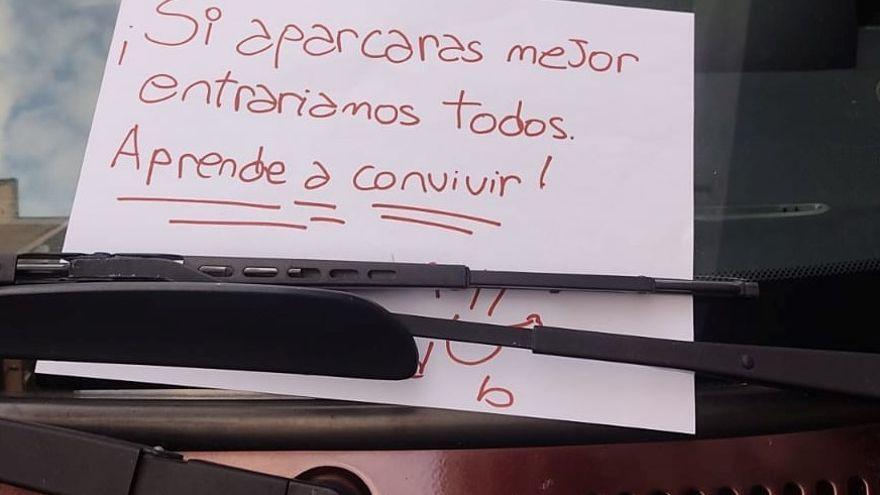 ¡Si aparcaras mejor
entrariamos todos.
Aprende a convivir!